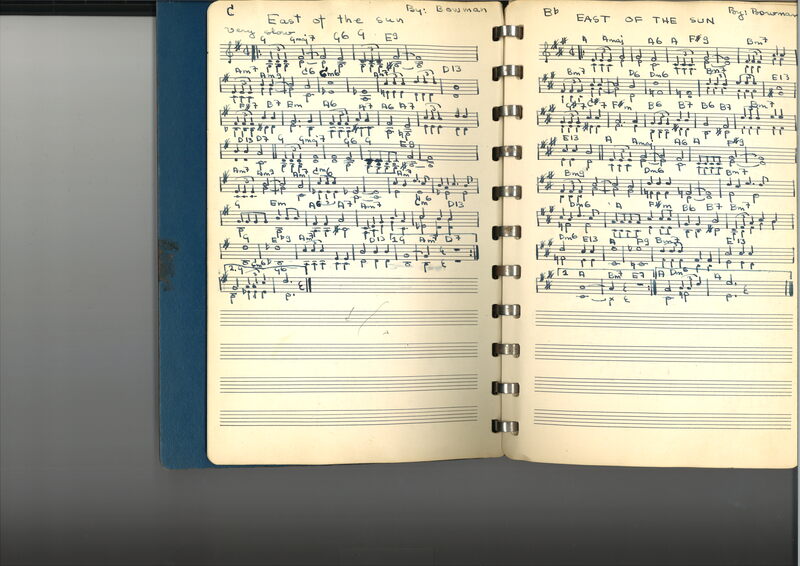 C
East of the sun
By: Bowman
Very slow
Gmaj7 G6 G E9
Am7 Am9 C6 Cm6 Am7 D13
F#7 B7 Bm A6 A7 A6 A7
D13 D7 G Gmaj7 G6 G E9
Am7 Am9 Am7 Cm6 Am7
G Em A6 A7 Am7 Cm D13
G E♭9 Am7 D13 1 G Am7 D7
2. G C6 G6
B♭
EAST OF THE SUN
By: Bowman
A Amaj A6 A F#9 Bm7
Bm7 D6 Dm6 Bm7 E13
G#7 C#7 F#m B6 B7 B6 B7 Bm7
E13 A Amaj A6 A F#9
Bm9 Dm6 Bm7
Dm6 A F#m B6 B7 Bm7
Dm6 E13 A F9 Bm7 E13
1 A Bm7 E7 A Dm6 A